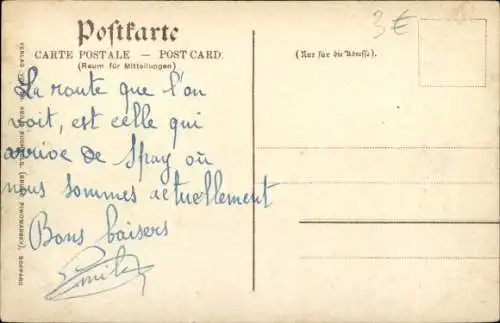 Postkarte
CARTE POSTALE — POST CARD.
(Raum für Mitteilungen)
(Nur für die Adresse).
3€
La route que l'on
voit, est celle qui
arrive de Spay où
nous sommes actuellement
Bons baisers
Emile
VERLAG
BOPPARD